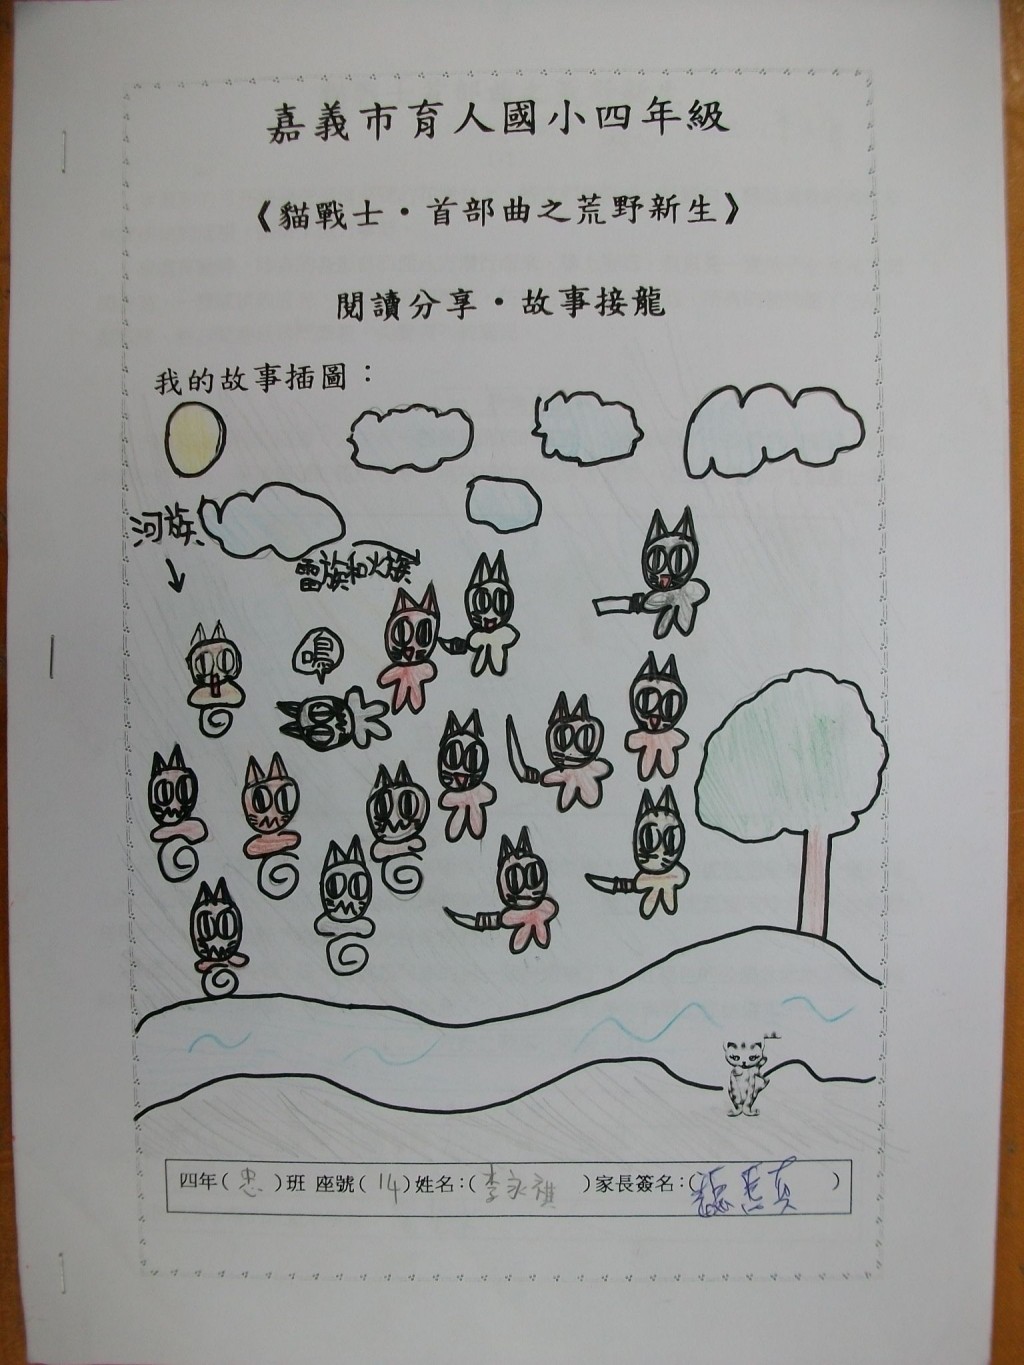 嘉義市育人國小四年級
《貓戰士·首部曲之荒野新生》
閱讀分享·故事接龍
我的故事插圖：
河族
雷族和火族
鳴
四年(忠)班 座號(14)姓名:(李)家長簽名:( )